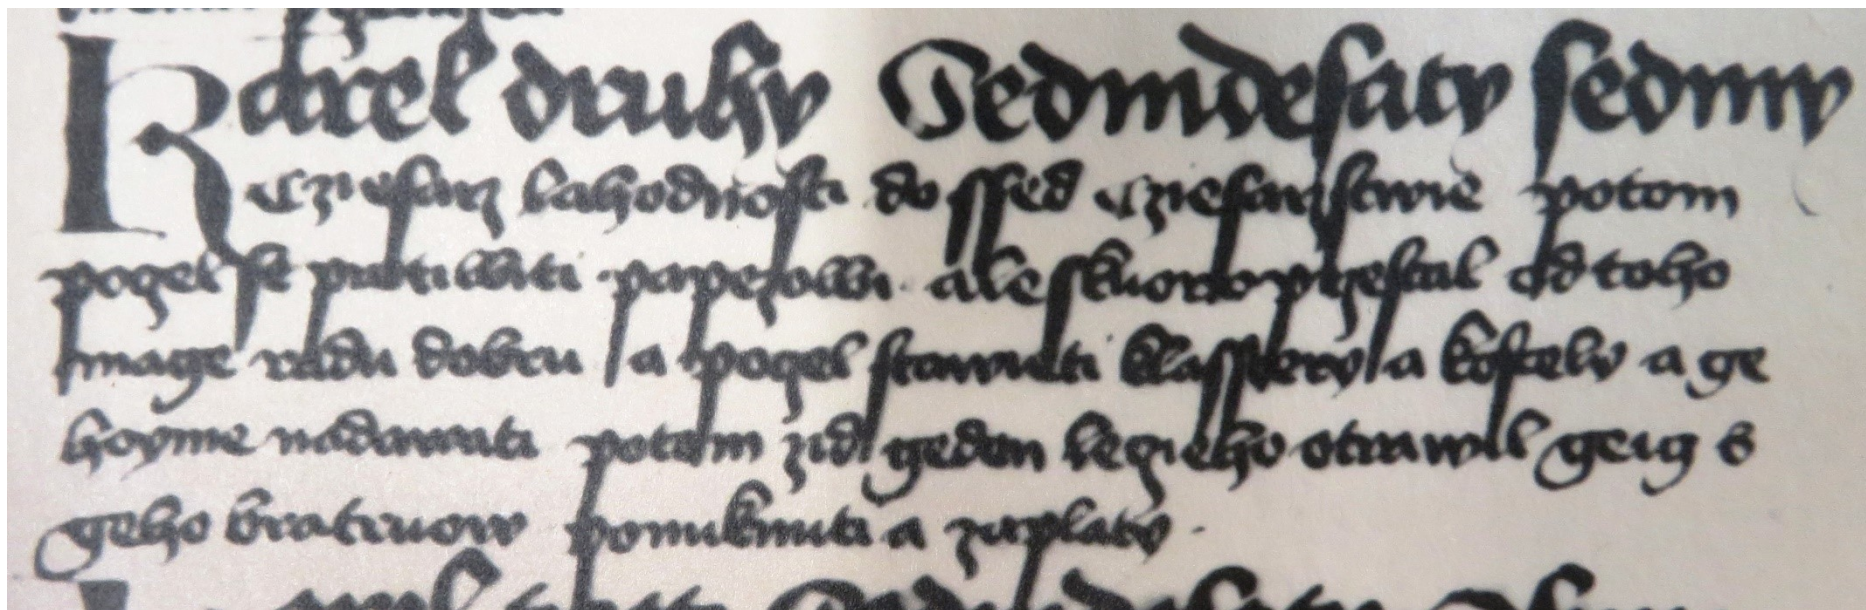 Karel druhy Sedmdesaty sedmy
Cziesarz lahodnosti dossed Cziesarstwie potom
pogel se protiwiti papezowi ale skuoro przestal od toho
magie radu dobru a pogel stawieti klasstery a kostely a ge
hoyme nadawati potom zid geden legieho otrawil geig s
geho bratruow ponuknuti a zaplaty